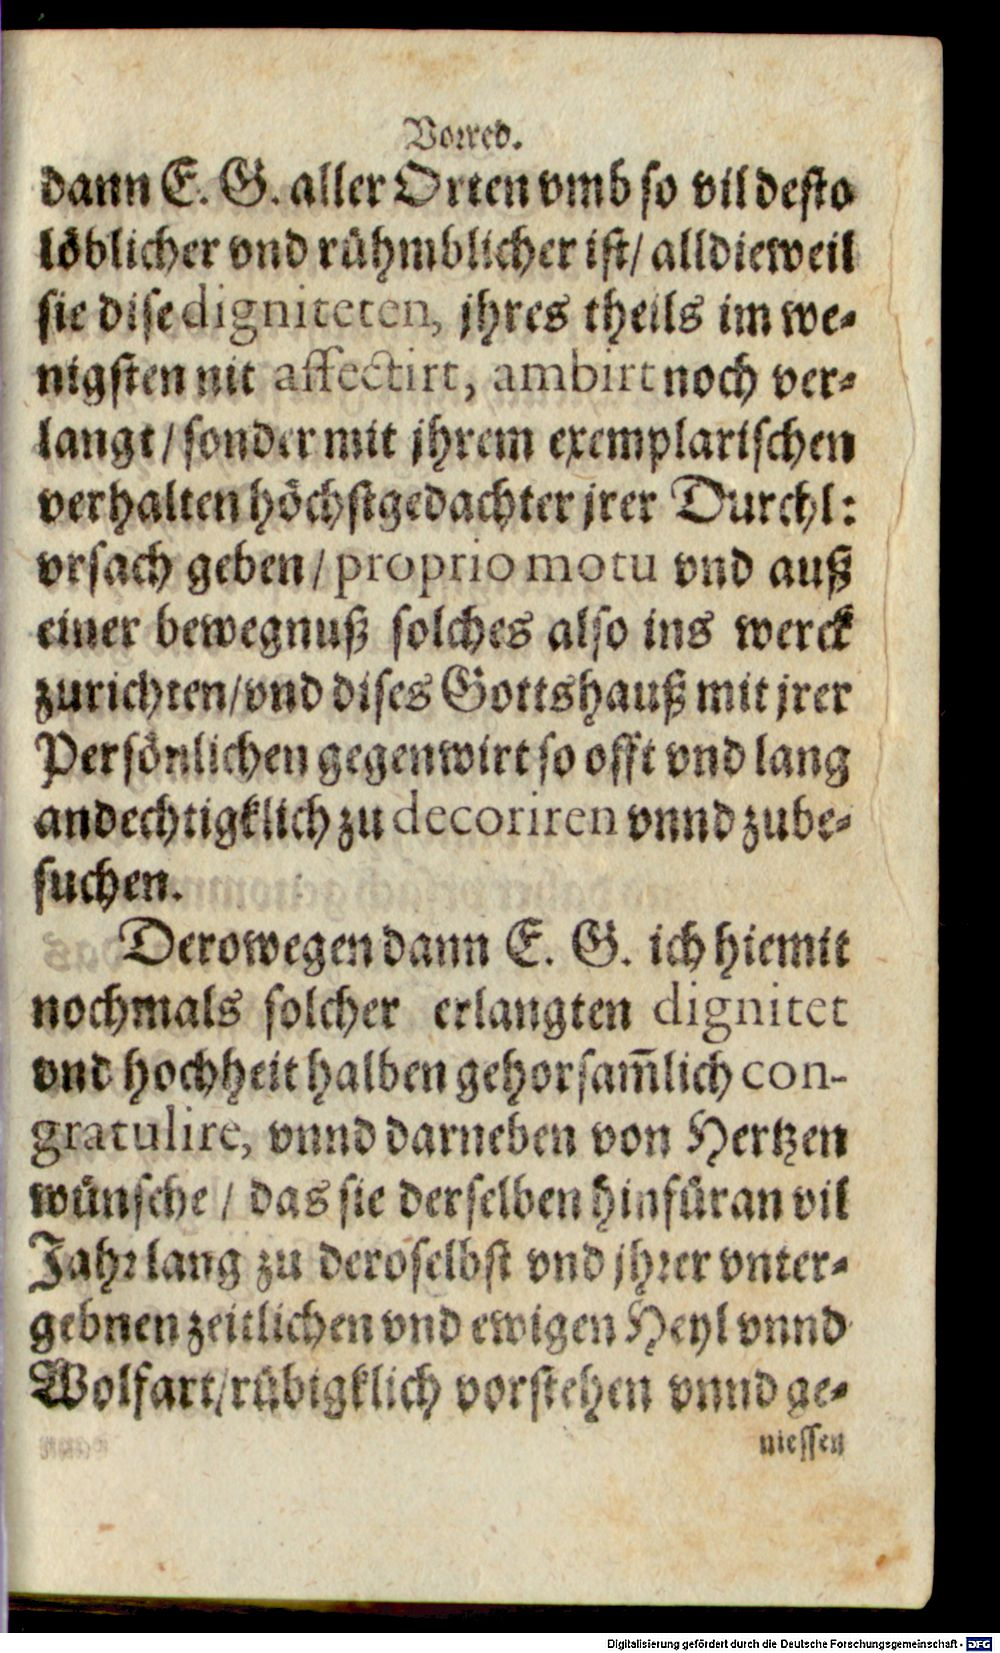 Vorred.
dann E. G. aller Orten vmb so vil desto
löblicher vnd rühmblicher ist/ alldieweil
sie dise digniteten, jhres theils im we-
nigsten nit affectirt, ambirt noch ver-
langt/ sonder mit jhrem exemplarischen
verhalten höchstgedachter jrer Durchl:
vrsach geben/ proprio motu vnd auß
einer bewegnuß solches also ins werck
zurichten/ vnd dises Gottshauß mit jrer
Persönlichen gegenwirt so offt vnd lang
andechtigklich zu decoriren vnnd zube-
suchen.
Derowegen dann E. G. ich hiemit
nochmals solcher erlangten dignitet
vnd hochheit halben gehorsam̃lich con-
gratulire, vnnd darneben von Hertzen
wünsche/ das sie derselben hinfüran vil
Jahr lang zu deroselbst vnd jhrer vnter-
gebnen zeitlichen vnd ewigen Heyl vnnd
Wolfart/ rübigklich vorstehen vnnd ge-
niessen
Digitalisierung gefördert durch die Deutsche Forschungsgemeinschaft - DFG